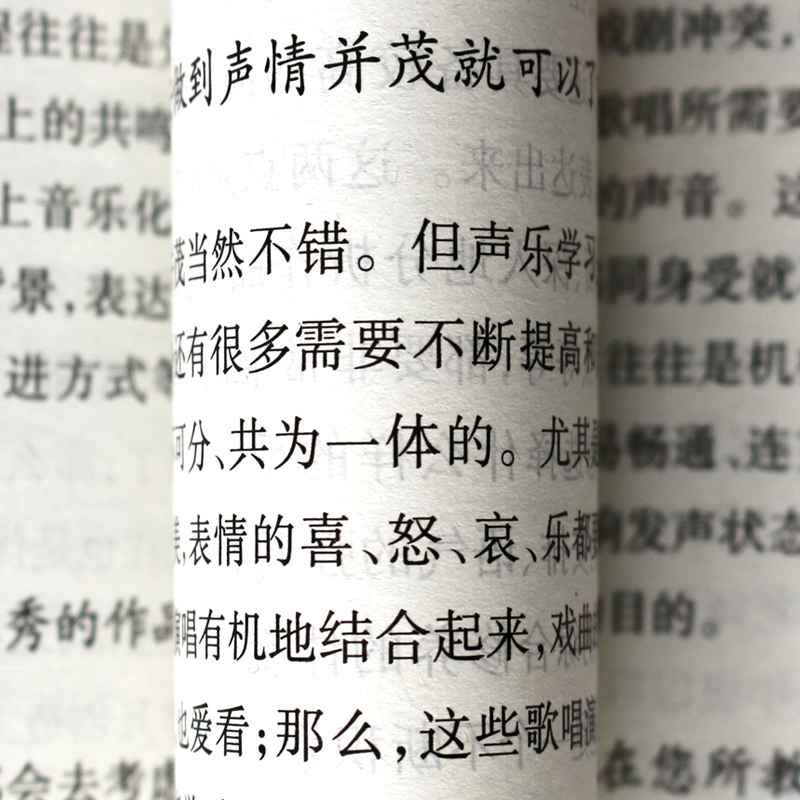 做到声情并茂就可以了
茂当然不错。但声乐学习
还有很多需要不断提高和
可分、共为一体的。尤其是
美,表情的喜、怒、哀、乐都要
演唱有机地结合起来,戏曲
也爱看;那么,这些歌唱演
往往是
上的共鸣
上音乐化
背景,表达
进方式等
秀的作品
会去考虑
戏剧冲突,
歌唱所需要
的声音。这
同身受就
往往是机
畅通、连
发声状态
目的。
在您所教